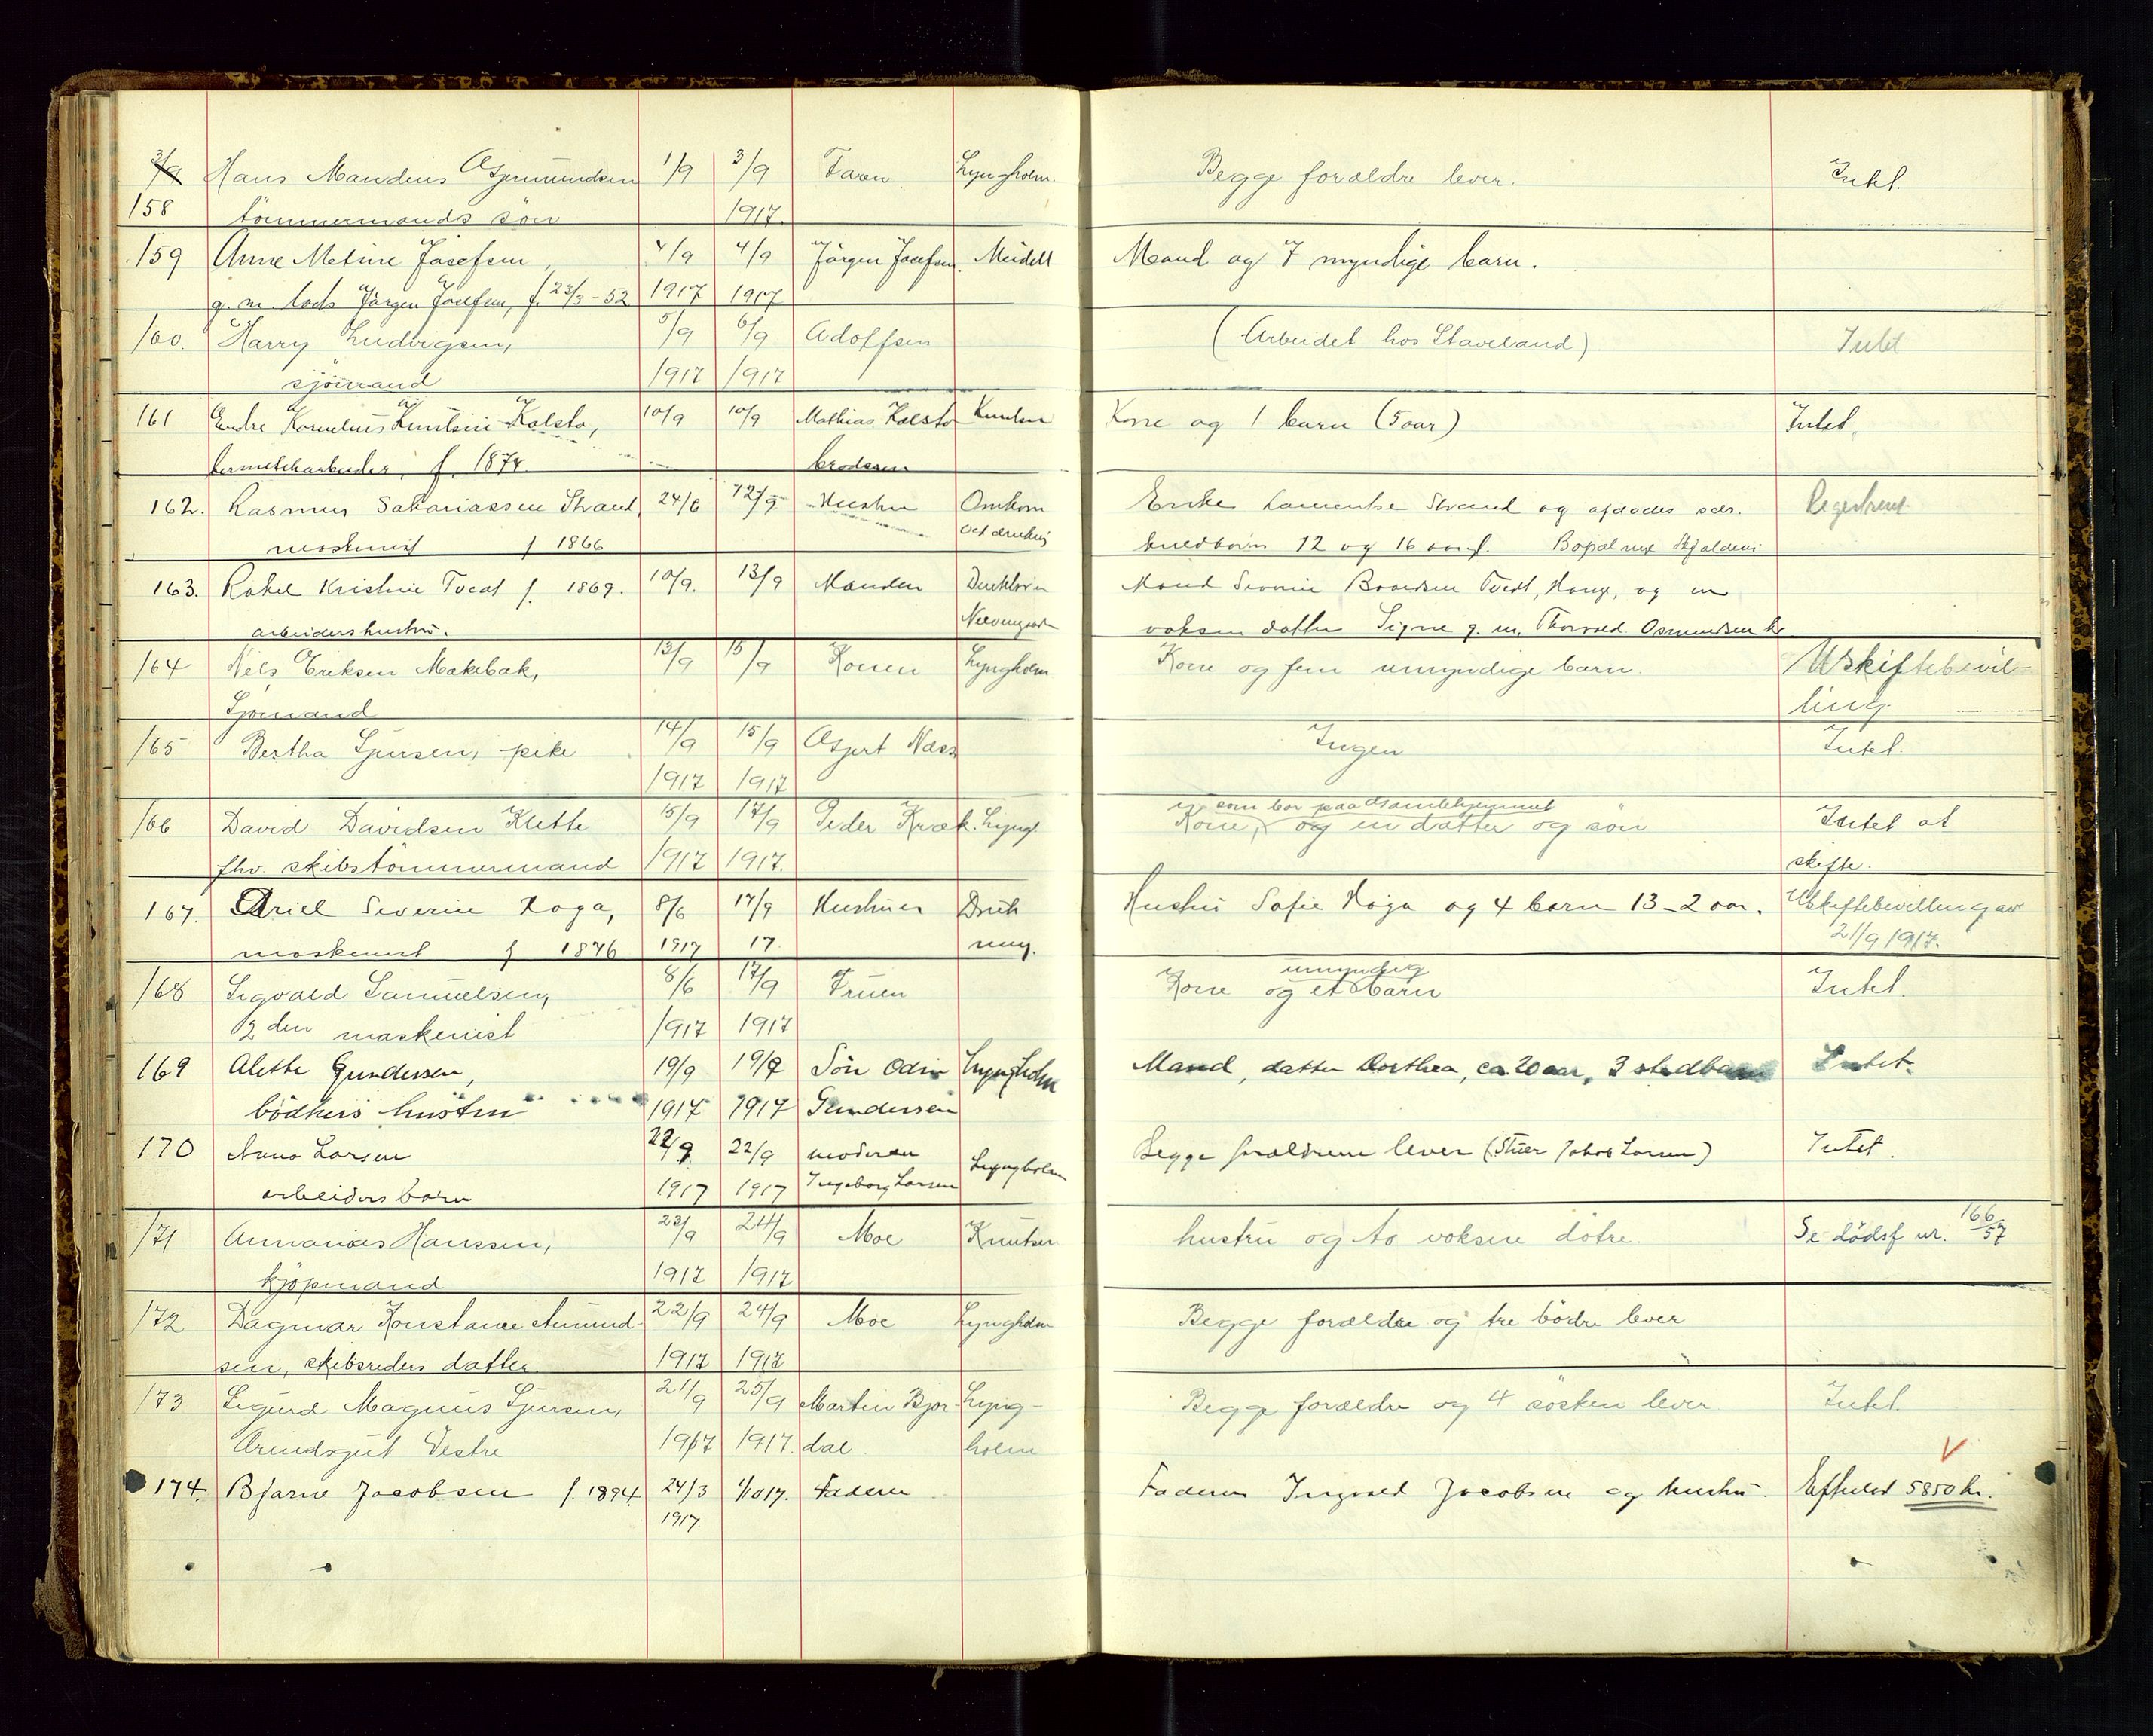 3/9 Hans Mandius Asjmundsen 1/9 3/9 Faren Lyngholm. Begge forældre lever. Intet.
158 tömmermands sön 1917.
159 Anne Metine Josefsen, 4/9 4/9 Jörgen Josefsen. Meidell Mand og 7 myndige barn.
g. m. lods Jörgen Josefsen, f. 23/3-52 1917 1917
160. Harry Ludvigsen, 5/9 6/9 Adolfsen (Arbeidet hos Staveland) Intet
sjömand 1917 1917
161 Endre Kornelius Knutsen Kolstø, 10/9 10/9 Mathias Kolstø Knutsen Kone og 1 barn (5 aar) Intet.
hermetikarbeider, f. 1874 brodsen
162. Rasmus Sakariassen Strand, 24/6 12/9 Hustru Omkom Enke Laurentse Strand og afdødes sær-
maskinist f 1866 ved drukning kuldbörn 12 og 16 aar. Bopæl nye Skjoldevei Registrert
163. Rakel Kristine Tvedt f. 1869. 10/9. 13/9 Manden Mand Severin Tvedt, Haug, og en
arbeiders hustru. voksen datter Signe g. m. Thorvald Osmundsen
164 Nils Eriksen Møkebak, 13/9 15/9 Konen Lyngholm Kone og fem umyndige barn. Uskiftebevil-
Sjömand ling
165 Bertha Sjursen, pike 14/9 15/9 Asjert Næss Ingen Intet.
1917 1917
som bor paa Gamlehjemmet
166 David Davidsen Klette 15/9 17/9 Peder Kræk. Lyngh. Kone, og en datter og sön Intet at
fhv. skibstömmermand 1917 1917. skifte.
167. Ariel Severin Koga, 8/6 17/9 Hustruen Druk Hustru Sofie Koga og 4 barn 13-2 aar. Uskiftebevilling av
maskinist f 1876 1917 17. ning. 21/9 1917.
umyndig
168 Sigvald Samuelsen, 8/6 17/9 Fruen Kone og et barn Intet.
2den maskinist 1917 1917
169 Alette Gundersen, 19/9 19/9 Sön Odin Lyngholm Mand, datter Dorthea, ca. 20 aar, 3 stedbarn Intet.
bödkers hustru 1917 1917 Gundersen
170 Anna Larsen 22/9. 22/9 moderen Lyngholm Begge forældrene lever (Stuer Jakob Larsen) Intet.
arbeiders barn 1917 1917 Ingeborg Larsen
171 Annanias Hanssen, 23/9 24/9 Moe Knutsen hustru og to voksne dötre. Se dödsf nr. 166/57
kjöpmand 1917 1917
172 Dagmar Konstance Amund- 22/9 24/9 Moe Lyngholm Begge forældre og tre bödre lever
sen, skibsreders datter. 1917 1917
173 Sigurd Magnus Sjursen, 21/9 25/9 Martin Bjor- Lyng- Begge forældre og 4 sösken lever Intet
Arendsgut Vestre 1917 1917. dal holm
174. Bjarne Jacobsen f. 1894 24/3 1/10 17. Faderen Faderen Ingvald Jacobsen og hustru. Efterlod 5850 kr.
1917.